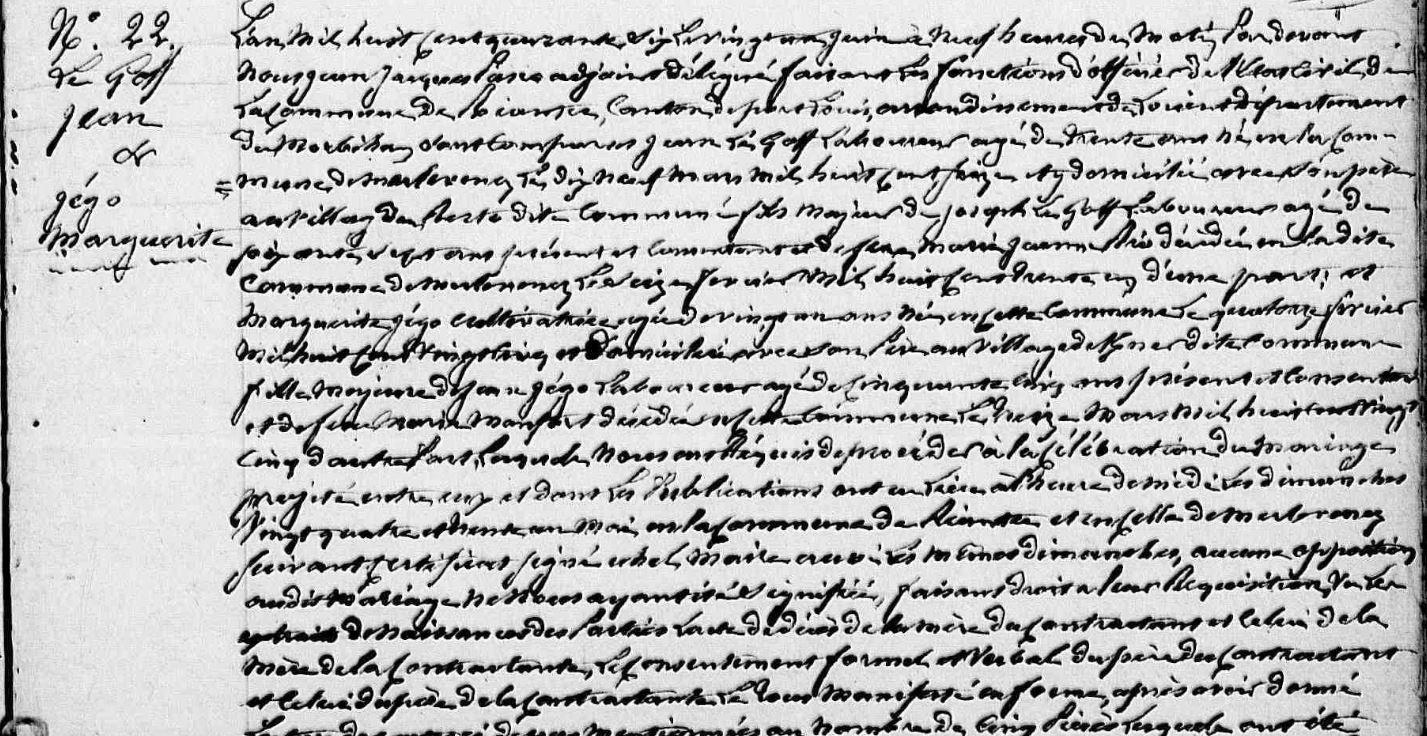 N.° 22.
Le Goff
Jean
&
Jégo
Marguerite
L'an mil huit cent quarante six le vingt un juin à neuf heures du matin Par devant
Nous Jean Jacques adjoint délégué faisant les fonctions d'officier de l'Etat Civil de
La Commune de Riantec, Canton de port Louis, arrondissement de Lorient département
du Morbihan sont comparus Jean Le Goff Laboureur agé de trente ans né en la Com-
mune de merlevenez le dix neuf mars mil huit cent seize et y domicilié avec son père
au village du dite Commune fils majeur de Joseph Le Goff Laboureur agé de
soixante sept ans présent et consentant et de feue Marie Jeanne décédée en la dite
Commune de merlevenez le février mil huit cent trente d'une part; et
Marguerite Jégo cultivatrice agée de vingt un ans née en cette Commune le quatorze février
mil huit cent vingt cinq et domiciliée avec son Père au village de dite Commune
fille majeure de Jean Jégo Laboureur agé de cinquante cinq ans présent et consentant
et de feue Marie décédée en cette Commune le treize Mars mil huit cent vingt
cinq d'autre Part, lesquels Nous ont Requis de procéder à la célébration du mariage
projeté entre eux et dont les Publications ont eu Lieu à l'heure de midi les dimanches
Vingt quatre et trente un Mai en la Commune de Riantec et en celle de Merlevenez
suivant certificat signé Maire les mêmes dimanches, aucune opposition
audit Mariage ne Nous ayant été signifiée, faisant droit à leur Requisition, Vu les
extraits de Naissances des Parties l'acte de décès de la mère du contractant et celui de la
mère de la Contractante, le consentement formel et verbal du père du contractant
et celui du père de la contractante le tout manifesté en forme, après avoir donné
Lecture des mentionnées au nombre de cinq Pièces lesquels ont été